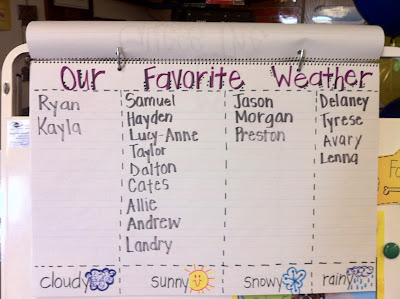 Our Favorite Weather
Ryan
Kayla
Samuel
Hayden
Lucy-Anne
Taylor
Dalton
Cates
Allie
Andrew
Landry
Jason
Morgan
Preston
Delaney
Tyrese
Avary
Lenna
cloudy
sunny
snowy
rainy